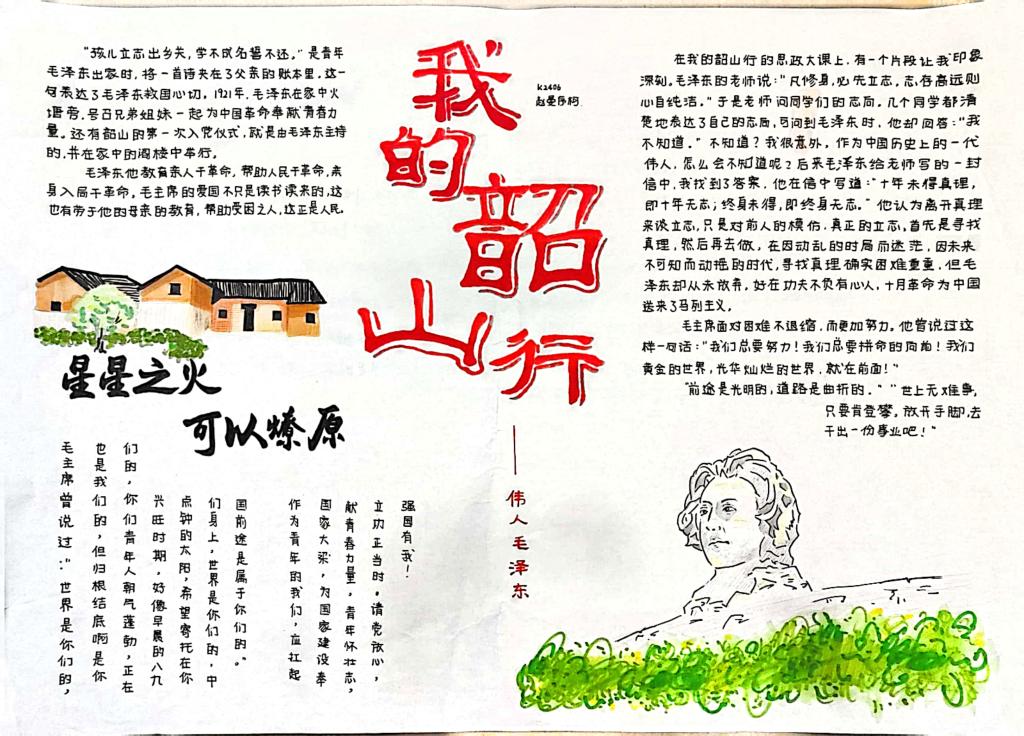 我的韶山行
K2406
——伟人毛泽东
“孩儿立志出乡关，学不成名誓不还。”是青年
毛泽东出家时，将一首诗夹在了父亲的账本里。这一
句表达了毛泽东救国心切。1921年，毛泽东在家中火
塘旁，号召兄弟姐妹一起为中国革命奉献青春力
量。还有韶山的第一次入党仪式，就是由毛泽东主持
的，并在家中的阁楼中举行。
毛泽东他教育亲人干革命，帮助人民干革命，亲
身入局干革命。毛主席的爱国不只是读书读来的，这
也有劳于他的母亲的教育，帮助受困之人，这正是人民。
星星之火
可以燎原
毛主席曾说过：“世界是你们的，
也是我们的，但归根结底啊是你
们的，你们青年人朝气蓬勃，正在
兴旺时期，好像早晨的八九
点钟的太阳，希望寄托在你
们身上，世界是你们的，中
国前途是属于你们的。”
作为青年的我们，应扛起
国家大梁，为国家建设奉
献青春力量，青年怀壮志，
立功正当时，请党放心，
强国有我！
在我的韶山行的思政大课上，有一个片段让我印象
深刻。毛泽东的老师说：“凡修身，必先立志，志存高远则
心自纯洁。”于是老师问同学们的志向。几个同学都清
楚地表达了自己的志向，可问到毛泽东时，他却回答：“我
不知道。”不知道？我很意外，作为中国历史上的一代
伟人，怎么会不知道呢？后来毛泽东给老师写的一封
信中，我找到了答案，他在信中写道：“十年未得真理，
即十年无志；终身未得，即终身无志。”他认为离开真理
来谈立志，只是对前人的模仿。真正的立志，首先是寻找
真理，然后再去做，在因动乱的时局而迷茫，因未来
不可知而动摇的时代，寻找真理确实困难重重，但毛
泽东却从未放弃。好在功夫不负有心人，十月革命为中国
送来了马列主义。
毛主席面对困难不退缩，而更加努力。他曾说过这
样一句话：“我们总要努力！我们总要拼命的向前！我们
黄金的世界，光华灿烂的世界，就在前面！”
“前途是光明的，道路是曲折的。”“世上无难事，
只要肯登攀，放开手脚，去
干出一份事业吧！”